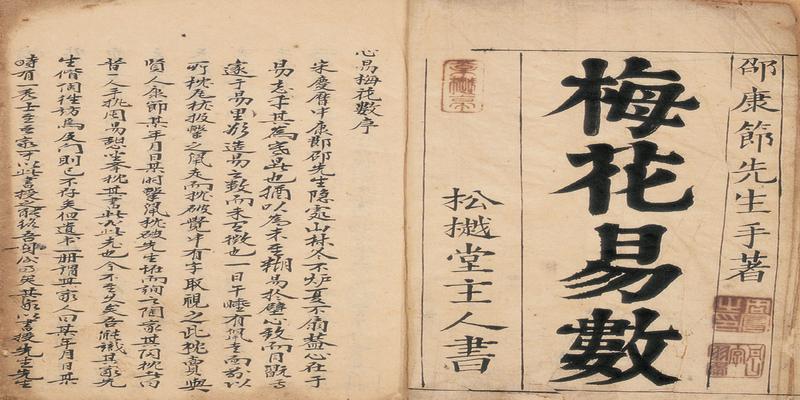 邵康節先生手著
梅花易數
松樾堂主人書
心易梅花數序
宋慶曆中康節邵先生隱處山林冬不炉夏不扇蓋心在于
易忘乎其為寒暑也猶以為未至糊易於壁心致而目翫焉
邃于易理欲造易之數而未有徵也一日午睡有鼠走而前以
所枕瓦枕投擊之鼠走而枕破覺中有字取視之此枕賣與
賢人康節某年月日某時擊鼠枕破先生怪而詢之陶家其陶枕者曰
昔一人手執周易憩坐舉枕其書此必此老也今不至久矣吾能識其家先
生偕陶往訪焉及門則已不存矣但遺書一冊謂其家人曰某年月日某
時有一秀士至吾家可以此書授之能終吾身後事矣其家以書授先生先生